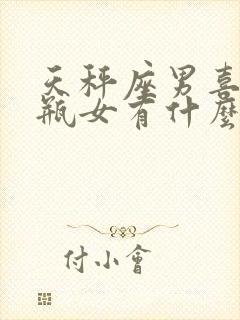 天秤座男喜
瓶女有什麼
付小會